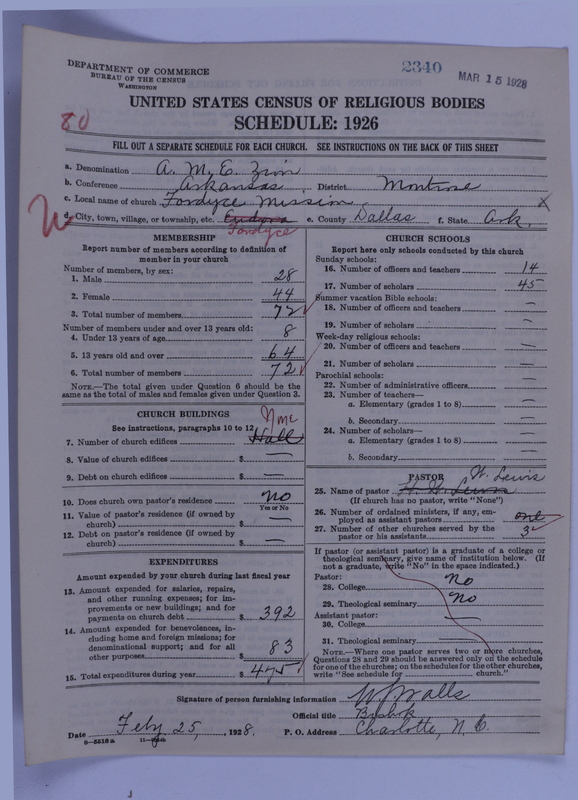 2340
MAR 15 1928
DEPARTMENT OF COMMERCE
BUREAU OF THE CENSUS
WASHINGTON
UNITED STATES CENSUS OF RELIGIOUS BODIES
SCHEDULE: 1926
80
FILL OUT A SEPARATE SCHEDULE FOR EACH CHURCH. SEE INSTRUCTIONS ON THE BACK OF THIS SHEET
a. Denomination A. M. E. Zion
b. Conference Arkansas District Montrose
c. Local name of church Fordyce Mission X
d. City, town, village, or township, etc. Eudora Fordyce e. County Dallas f. State Ark.
MEMBERSHIP
Report number of members according to definition of
member in your church
Number of members, by sex:
1. Male 28
2. Female 44
3. Total number of members 72
Number of members under and over 13 years old:
4. Under 13 years of age 8
5. 13 years old and over 64
6. Total number of members 72
NOTE.—The total given under Question 6 should be the
same as the total of males and females given under Question 3.
CHURCH BUILDINGS
See instructions, paragraphs 10 to 12 None
7. Number of church edifices Hall
8. Value of church edifices $ —
9. Debt on church edifices $ —
10. Does church own pastor's residence No
Yes or No
11. Value of pastor's residence (if owned by
church) $ —
12. Debt on pastor's residence (if owned by
church) $ —
EXPENDITURES
Amount expended by your church during last fiscal year
13. Amount expended for salaries, repairs,
and other running expenses; for im-
provements or new buildings; and for
payments on church debt $ 392
14. Amount expended for benevolences, in-
cluding home and foreign missions; for
denominational support; and for all
other purposes $ 83
15. Total expenditures during year $ 475
CHURCH SCHOOLS
Report here only schools conducted by this church
Sunday schools:
16. Number of officers and teachers 14
17. Number of scholars 45
Summer vacation Bible schools:
18. Number of officers and teachers —
19. Number of scholars —
Week-day religious schools:
20. Number of officers and teachers —
21. Number of scholars —
Parochial schools:
22. Number of administrative officers —
23. Number of teachers—
a. Elementary (grades 1 to 8) —
b. Secondary —
24. Number of scholars—
a. Elementary (grades 1 to 8) —
b. Secondary —
PASTOR W. Lewis
25. Name of pastor H. W. Lewis
(If church has no pastor, write "None")
26. Number of ordained ministers, if any, em-
ployed as assistant pastors one
27. Number of other churches served by the
pastor or his assistants 3
If pastor (or assistant pastor) is a graduate of a college or
theological seminary, give name of institution below. (If
not a graduate, write "No" in the space indicated.)
Pastor:
28. College No
29. Theological seminary No
Assistant pastor:
30. College —
31. Theological seminary —
NOTE.—Where one pastor serves two or more churches,
Questions 28 and 29 should be answered only on the schedule
for one of the churches; on the schedules for the other churches,
write "See schedule for church."
Signature of person furnishing information W J Walls
Official title Bishop
Date Feby 25, , 1928. P. O. Address Charlotte, N. C.
8-5518a